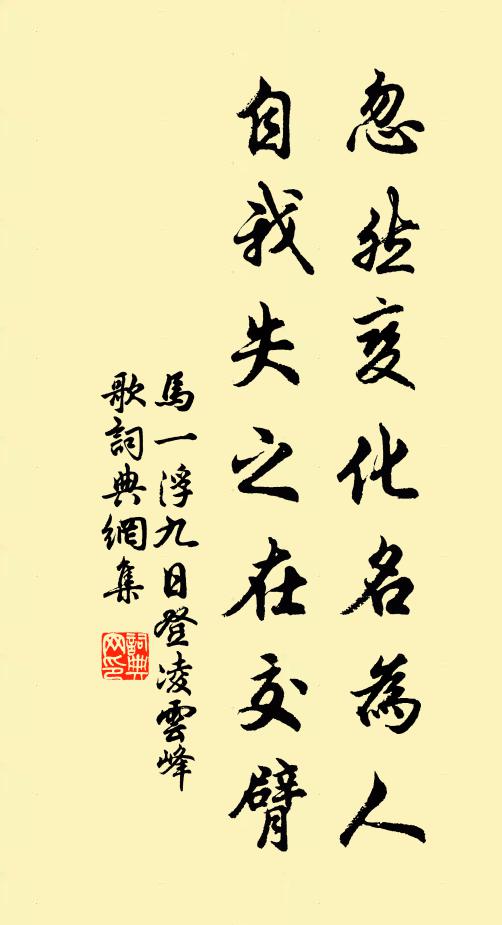 忽然变化名為人
自我失之在交臂
馬一浮九日登凌雲峰
歌詞典網集
詞典網印